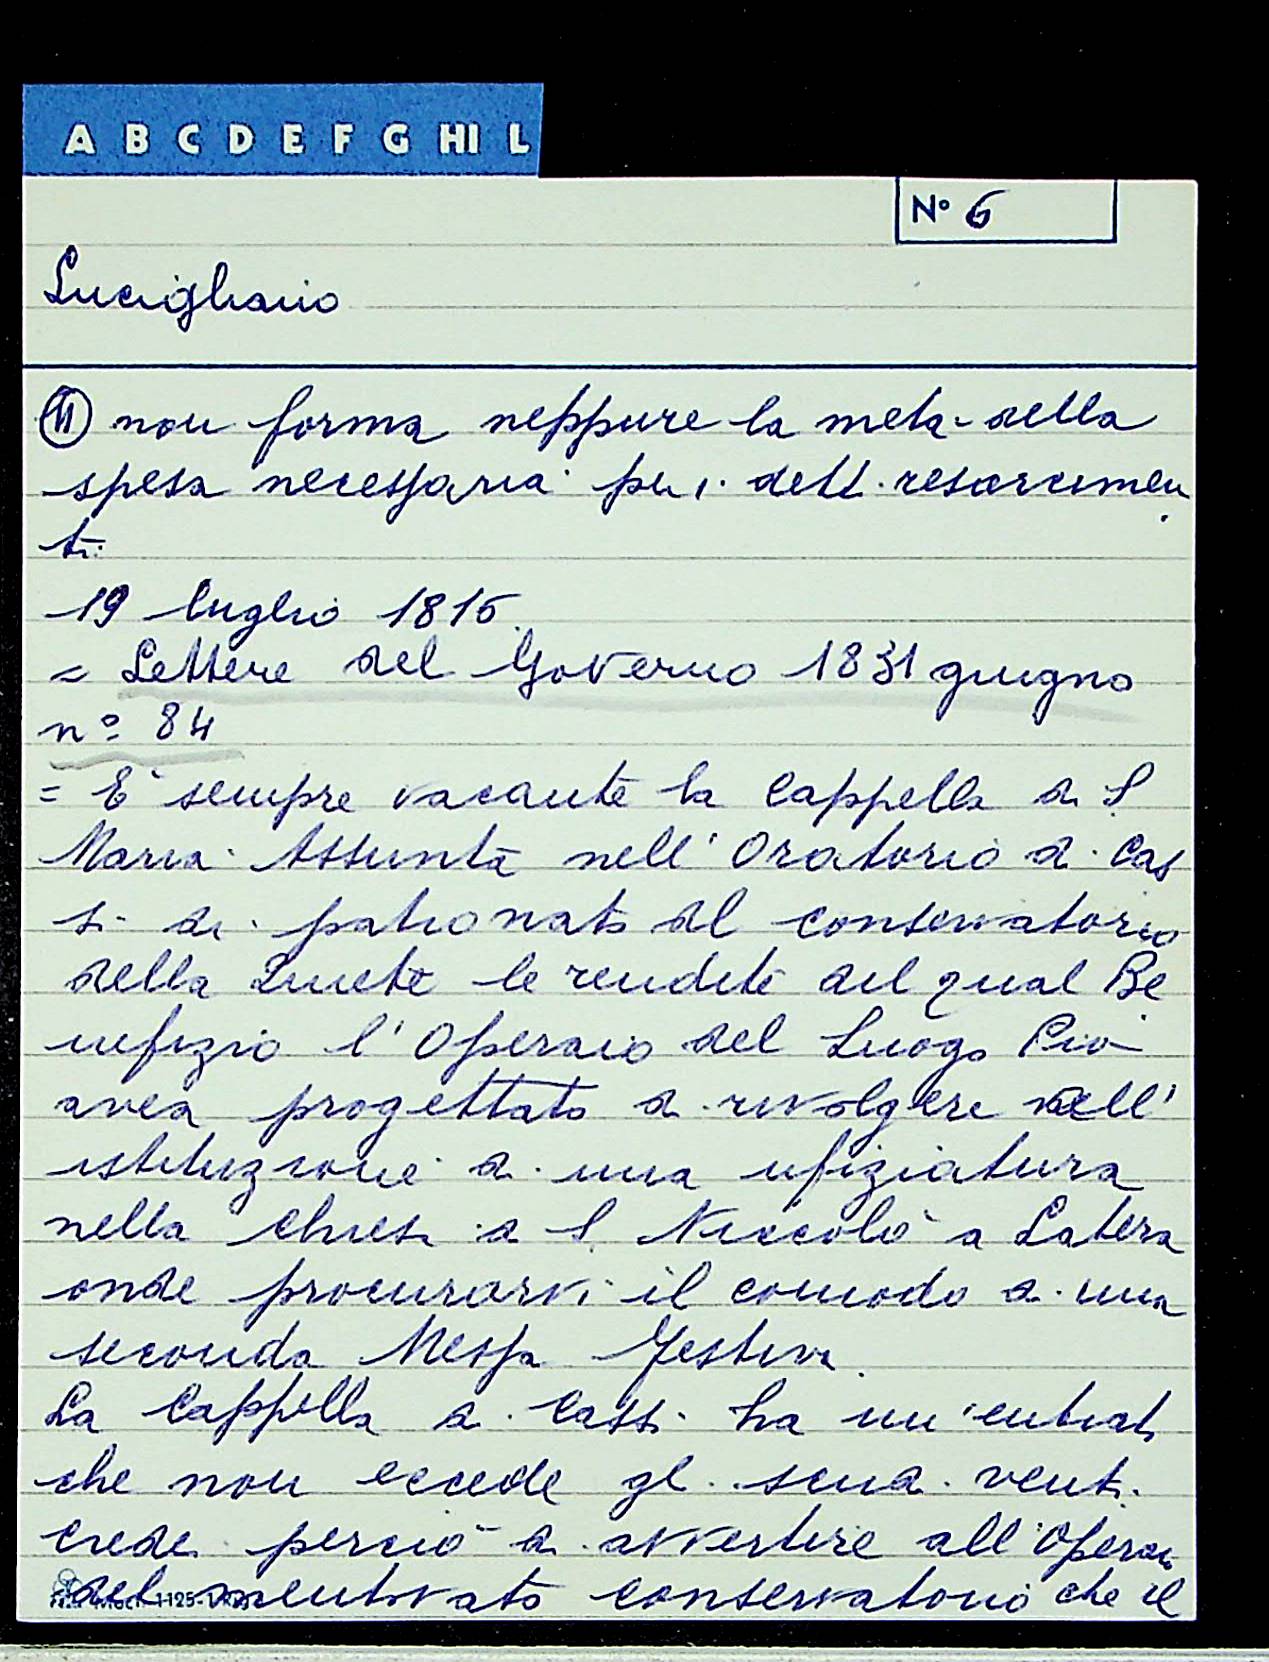 A B C D E F G HI L
Nº 6
Lucigliano
II non forma neppure la metà della
spesa necessaria per i detti resarcimen
ti.
19 luglio 1815.
= Lettere del Governo 1831 giugno
nº 84
= E' sempre vacante la Cappella di S.
Maria Assunta nell'Oratorio di Cas
si di patronato del conservatorio
della Quiete le rendite del qual Be
nefizio l'Operaio del Luogo Pio
avea progettato di rivolgere nell'
istituzione di una ufiziatura
nella chiesa di S. Niccolò a Latera
onde procurarvi il comodo di una
seconda Messa festiva.
La Cappella di Cassi ha un'entrata
che non eccede gli scudi venti.
Crede perciò di avvertire all'Operaio
del mentovato conservatorio che il